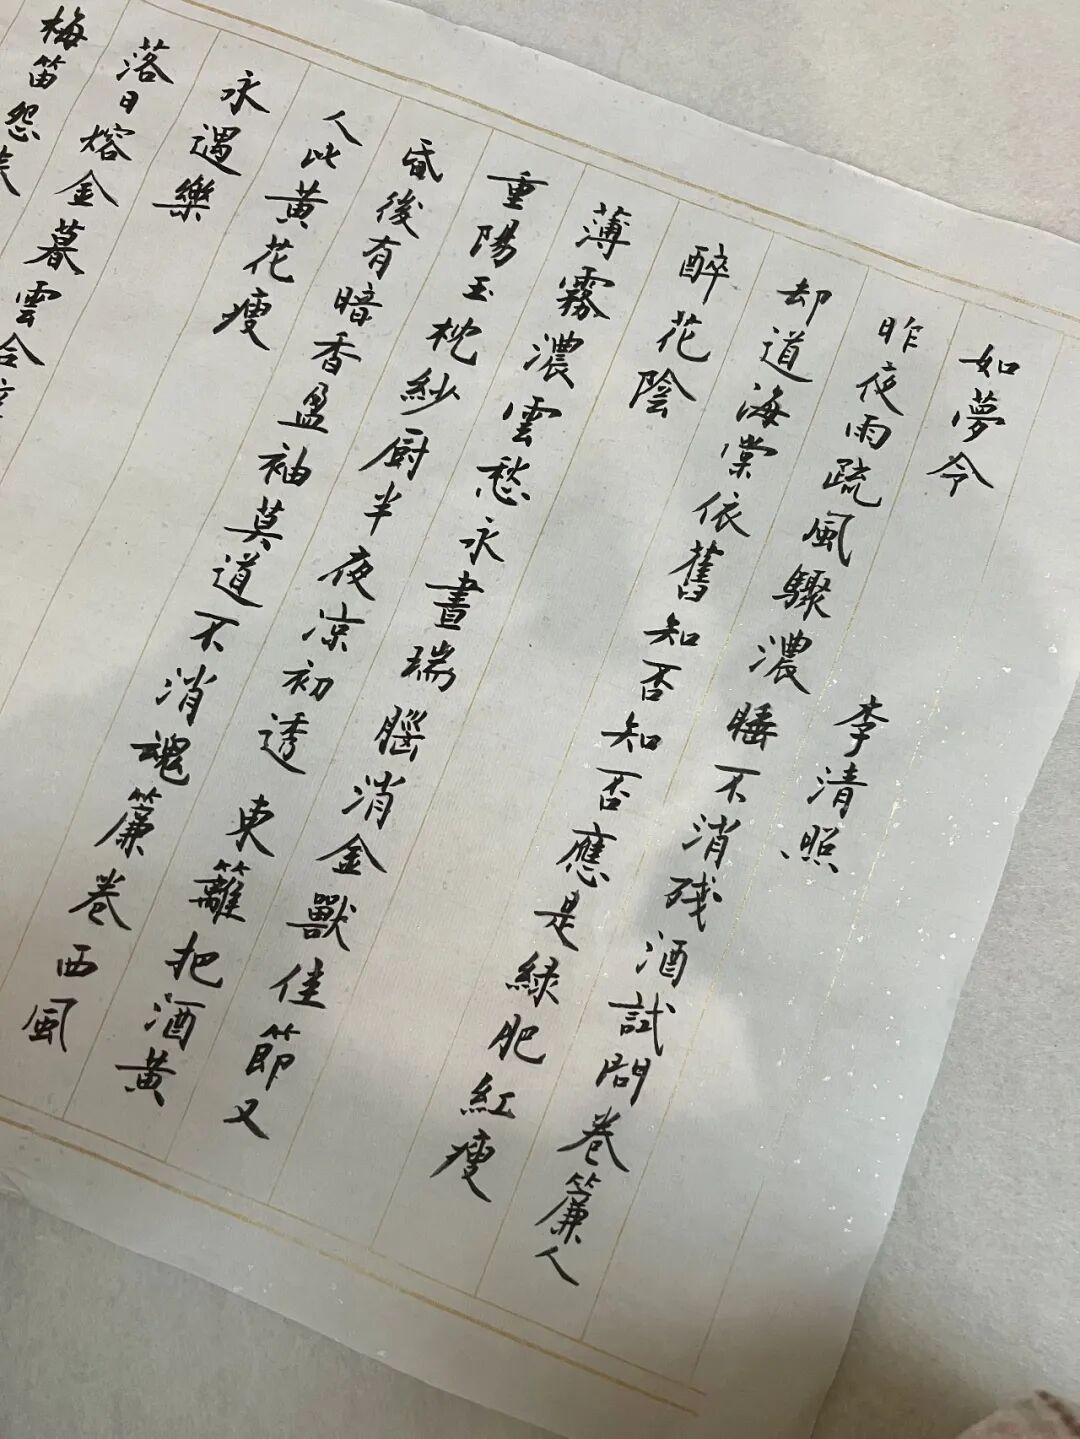 如夢令 李清照
昨夜雨疏風驟濃睡不消残酒試問卷簾人
却道海棠依舊知否知否應是緑肥紅瘦
醉花陰
薄霧濃雲愁永晝瑞腦消金獸佳節又
重陽玉枕紗厨半夜凉初透 東籬把酒黃
昏後有暗香盈袖莫道不消魂簾卷西風
人比黃花瘦
永遇樂
落日熔金暮雲合
梅笛怨